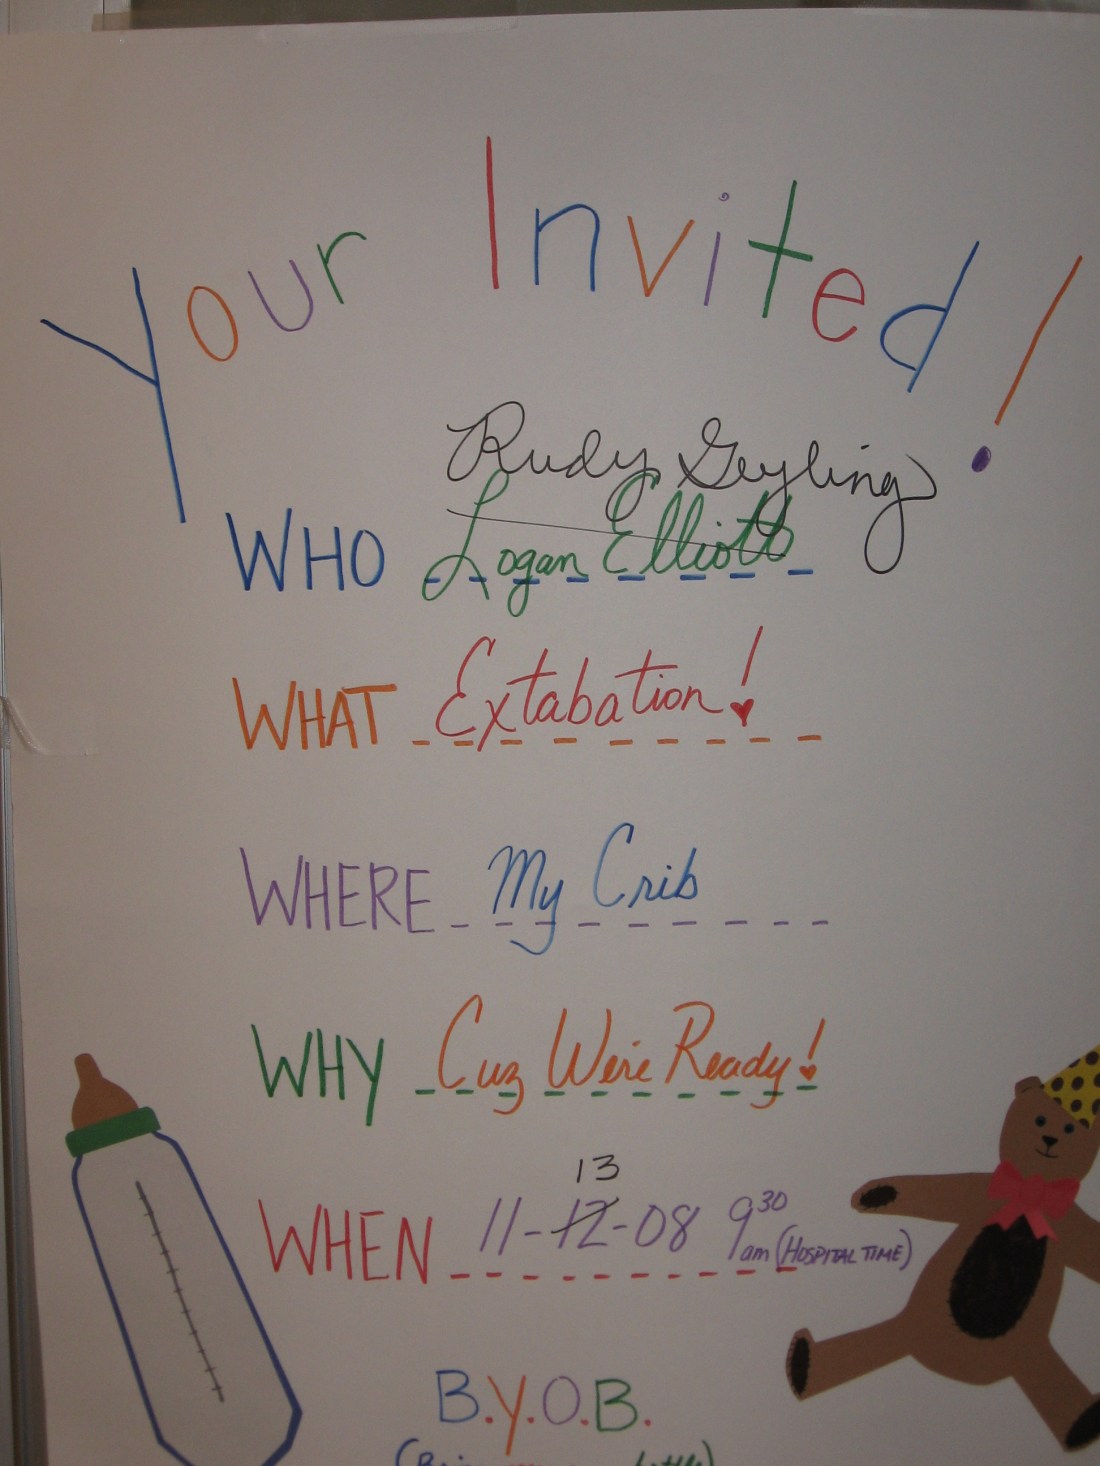 Your Invited!
Rudy Geyling
WHO Logan Elliott
WHAT Extabation!
WHERE My Crib
WHY Cuz We're Ready!
13
WHEN 11-12-08 9 30 am (HOSPITAL TIME)
B.Y.O.B.